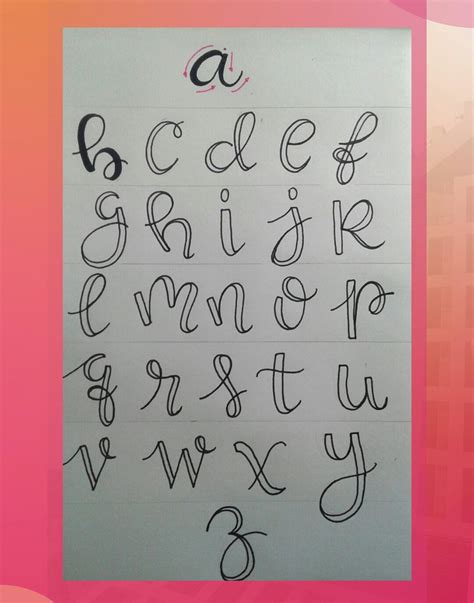 a
b c d e f
g h i j k
l m n o p
q r s t u
v w x y
z